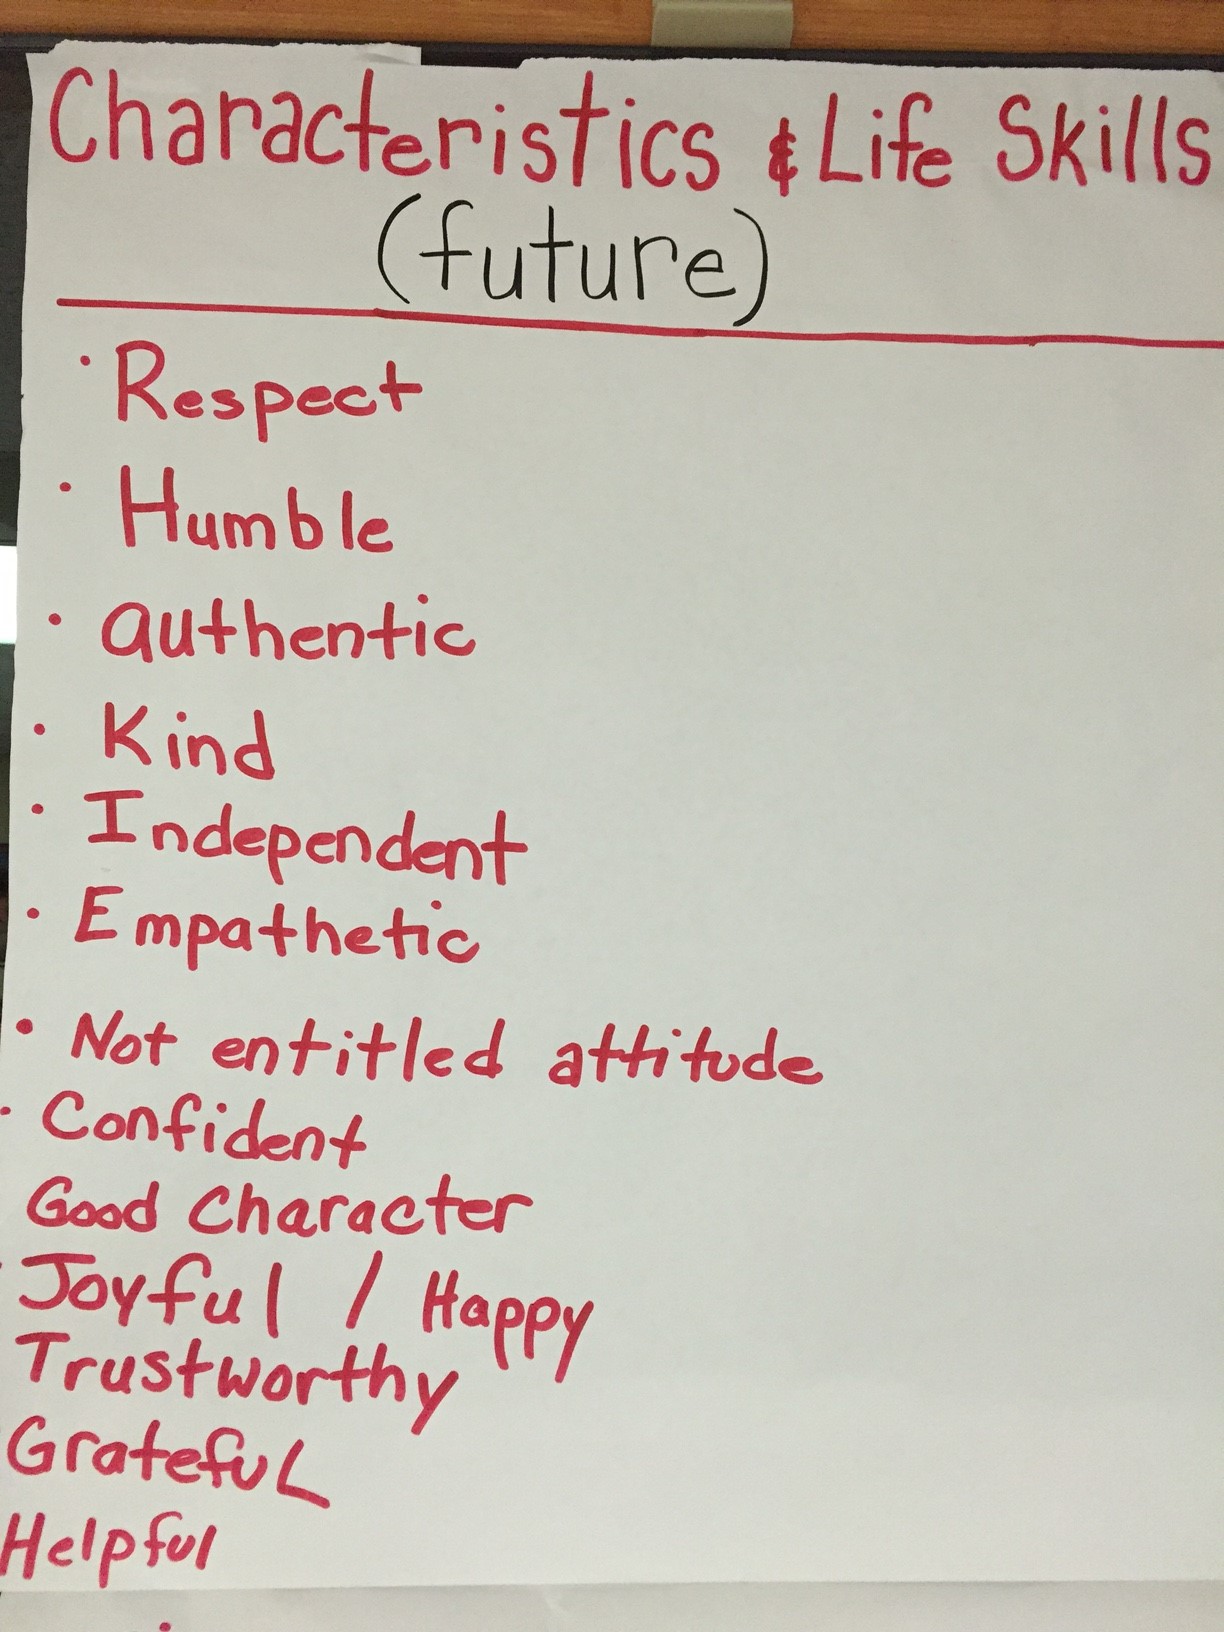 Characteristics & Life Skills
(future)
· Respect
· Humble
· authentic
· Kind
· Independent
· Empathetic
· Not entitled attitude
· Confident
Good Character
· Joyful / Happy
Trustworthy
Grateful
Helpful